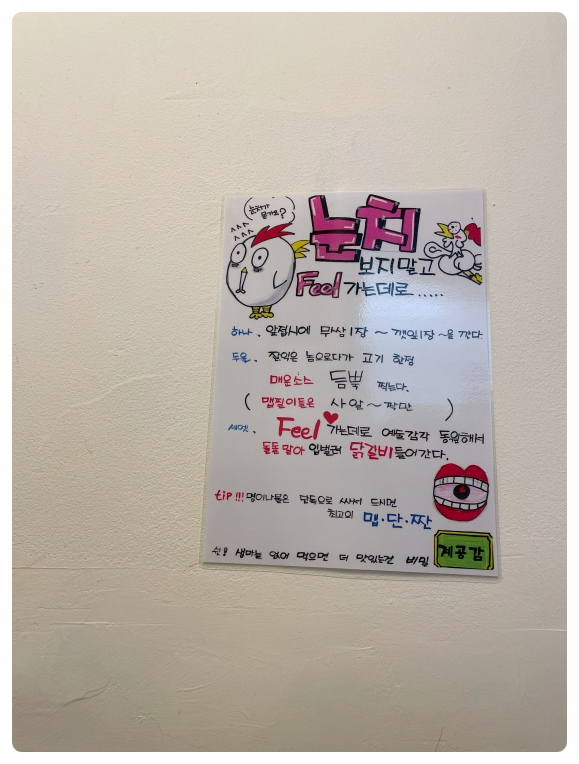 눈치가
뭔가요?
눈치
보지말고
Feel 가는데로.....
하나. 앞접시에 무쌈1장 ~ 깻잎1장 ~을 깐다
두울. 잘익은 놈으로다가 고기 한점
매운소스 듬뿍 찍는다.
( 맵찔이들은 사알~짝만 )
세엣. Feel 가는데로 예술감각 동원해서
돌돌말아 입벌려 닭갈비 들어간다.
tip!!! 명이나물은 단독으로 싸서 드시면
최고의 맵·단·짠
쉿! 생마늘 얹어 먹으면 더 맛있는건 비밀
계공감